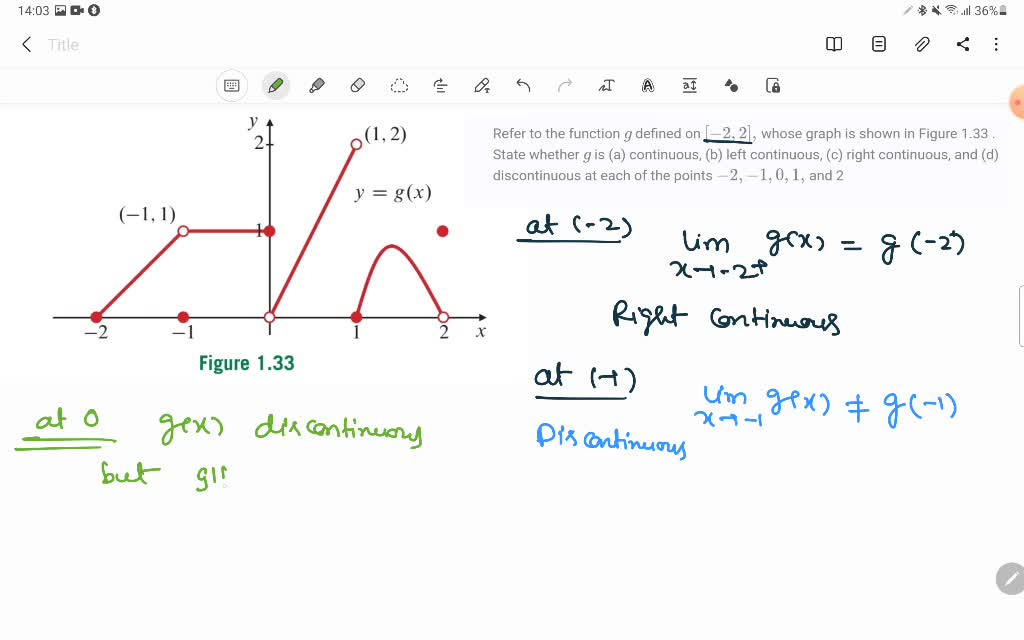 14:03 36%
Title
y
2
(1, 2)
y = g(x)
(−1, 1)
1
−2 −1 1 2 x
Figure 1.33
Refer to the function g defined on [−2, 2], whose graph is shown in Figure 1.33 .
State whether g is (a) continuous, (b) left continuous, (c) right continuous, and (d)
discontinuous at each of the points −2, −1, 0, 1, and 2
at (-2)
lim g(x) = g(-2⁺)
x→-2⁺
Right Continuous
at (-1)
lim g(x) ≠ g(-1)
x→-1
Discontinuous
at 0 g(x) discontinuous
but